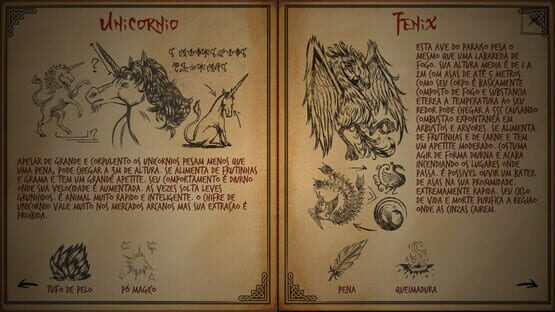 Unicornio
APESAR DE GRANDE E CORPULENTO OS UNICORNIOS PESAM MENOS QUE
UMA PENA, PODE CHEGAR A 5M DE ALTURA. SE ALIMENTA DE FRUTINHAS
E GRAMA E TEM UM GRANDE APETITE. SEU COMPORTAMENTO É DIURNO
ONDE SUA VELOCIDADE É AUMENTADA. AS VEZES SOLTA LEVES
GRUNHIDOS. É ANIMAL MUITO RAPIDO E INTELIGENTE. O CHIFRE DE
UNICORNIO VALE MUITO NOS MERCADOS ARCANOS MAS SUA EXTRAÇÃO É
PROIBIDA.
TUFO DE PELO
PÓ MAGICO
Fenix
ESTA AVE DO PARAISO PESA O
MESMO QUE UMA LABAREDA DE
FOGO. SUA ALTURA MEDIA É DE 1 A
2M COM ASAS DE ATÉ 5 METROS.
COMO SEU CORPO É BASICAMENTE
COMPOSTO DE FOGO E SUBSTANCIA
ETEREA A TEMPERATURA AO SEU
REDOR PODE CHEGAR A 55C CAUSANDO
COMBUSTAO EXPONTANEA EM
ARBUSTOS E ARVORES. SE ALIMENTA
DE FRUTINHAS E DE CARNE E TEM
UM APETITE MODERADO. COSTUMA
AGIR DE FORMA DIURNA E ACABA
INCENDIANDO OS LUGARES ONDE
PASSA. É POSSIVEL OUVIR UM BATER
DE ASAS NA SUA PROXIMIDADE.
EXTREMAMENTE RAPIDA. SEU CICLO
DE VIDA E MORTE PURIFICA A REGIAO
ONDE AS CINZAS CAIREM.
PENA
QUEIMADURA